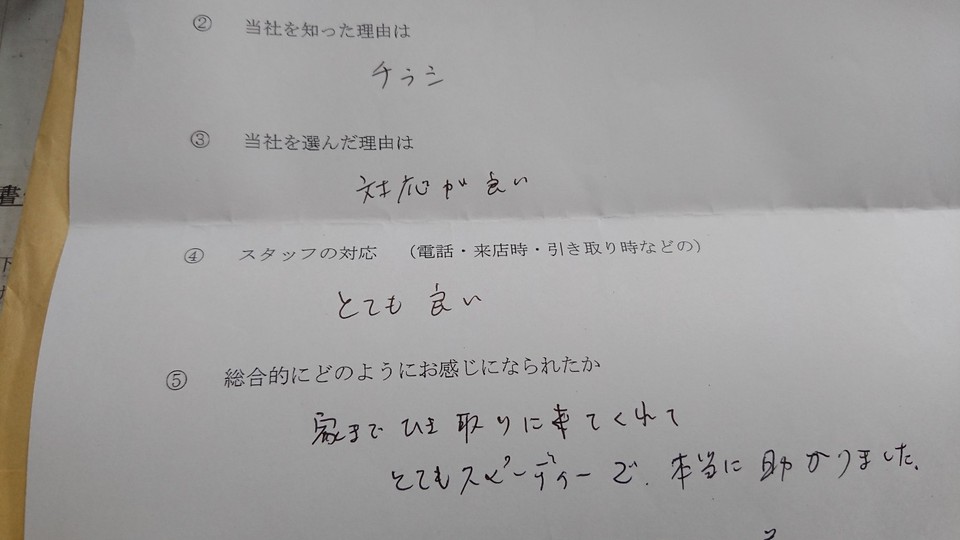 ② 当社を知った理由は
チラシ
③ 当社を選んだ理由は
対応が良い
④ スタッフの対応 （電話・来店時・引き取り時などの）
とても良い
⑤ 総合的にどのようにお感じになられたか
家までひき取りに来てくれて
とてもスピーディーで、本当に助かりました。
書
下